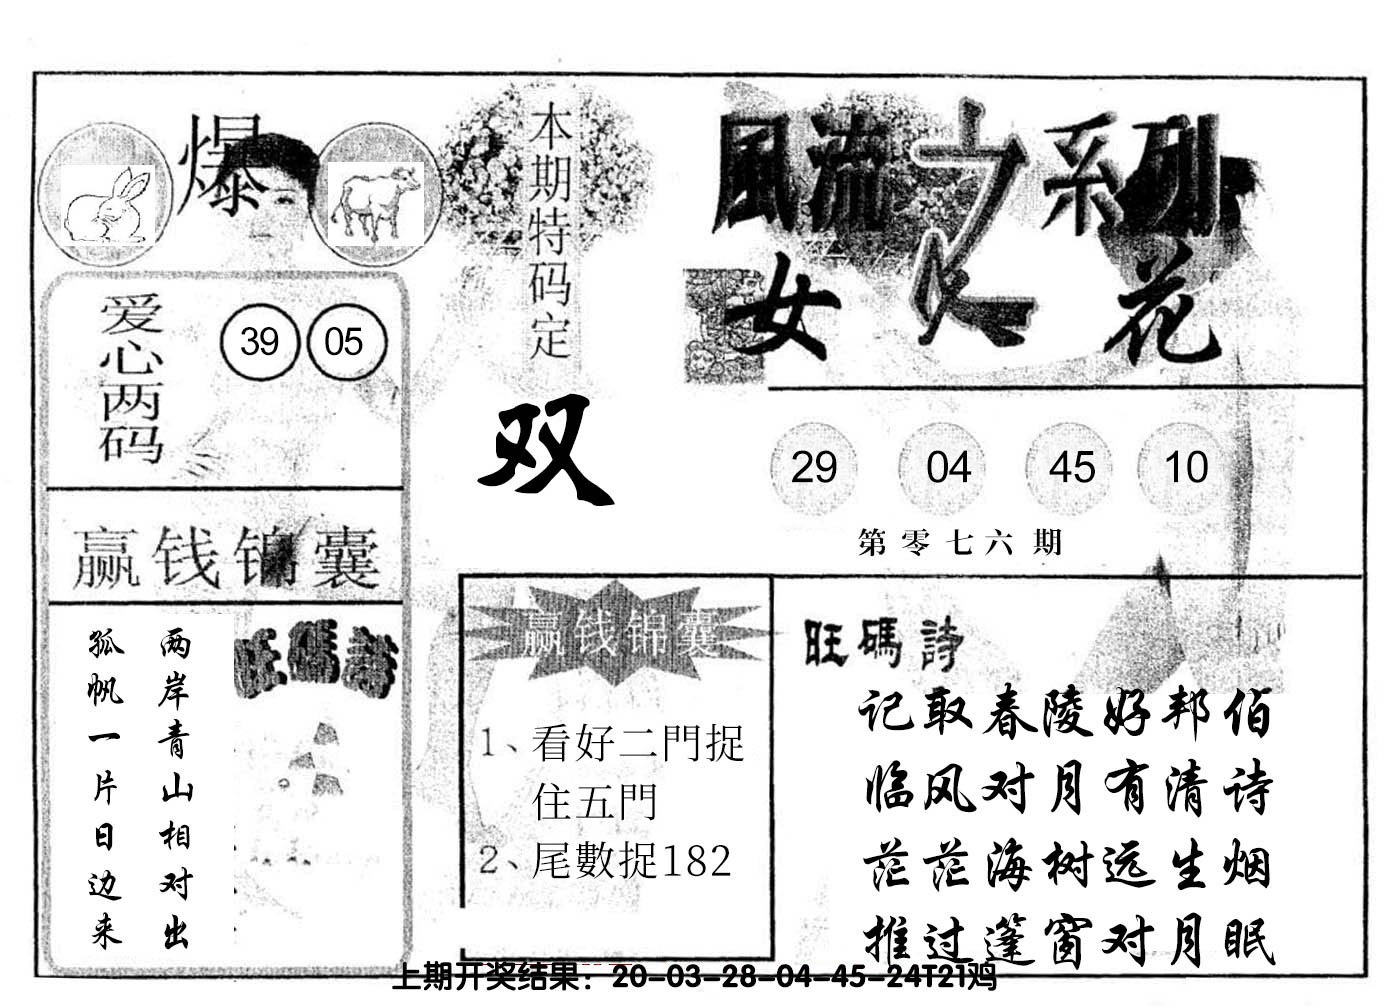 爆
爱心两码
39 05
赢钱锦囊
旺碼詩
两岸青山相对出
孤帆一片日边来
本期特码定
双
風流之系列
女人花
29 04 45 10
第零七六期
赢钱锦囊
1、看好二門捉
住五門
2、尾數捉182
旺碼詩
记取春陵好邦伯
临风对月有清诗
茫茫海树远生烟
推过篷窗对月眠
上期开奖结果：20-03-28-04-45-24T21鸡